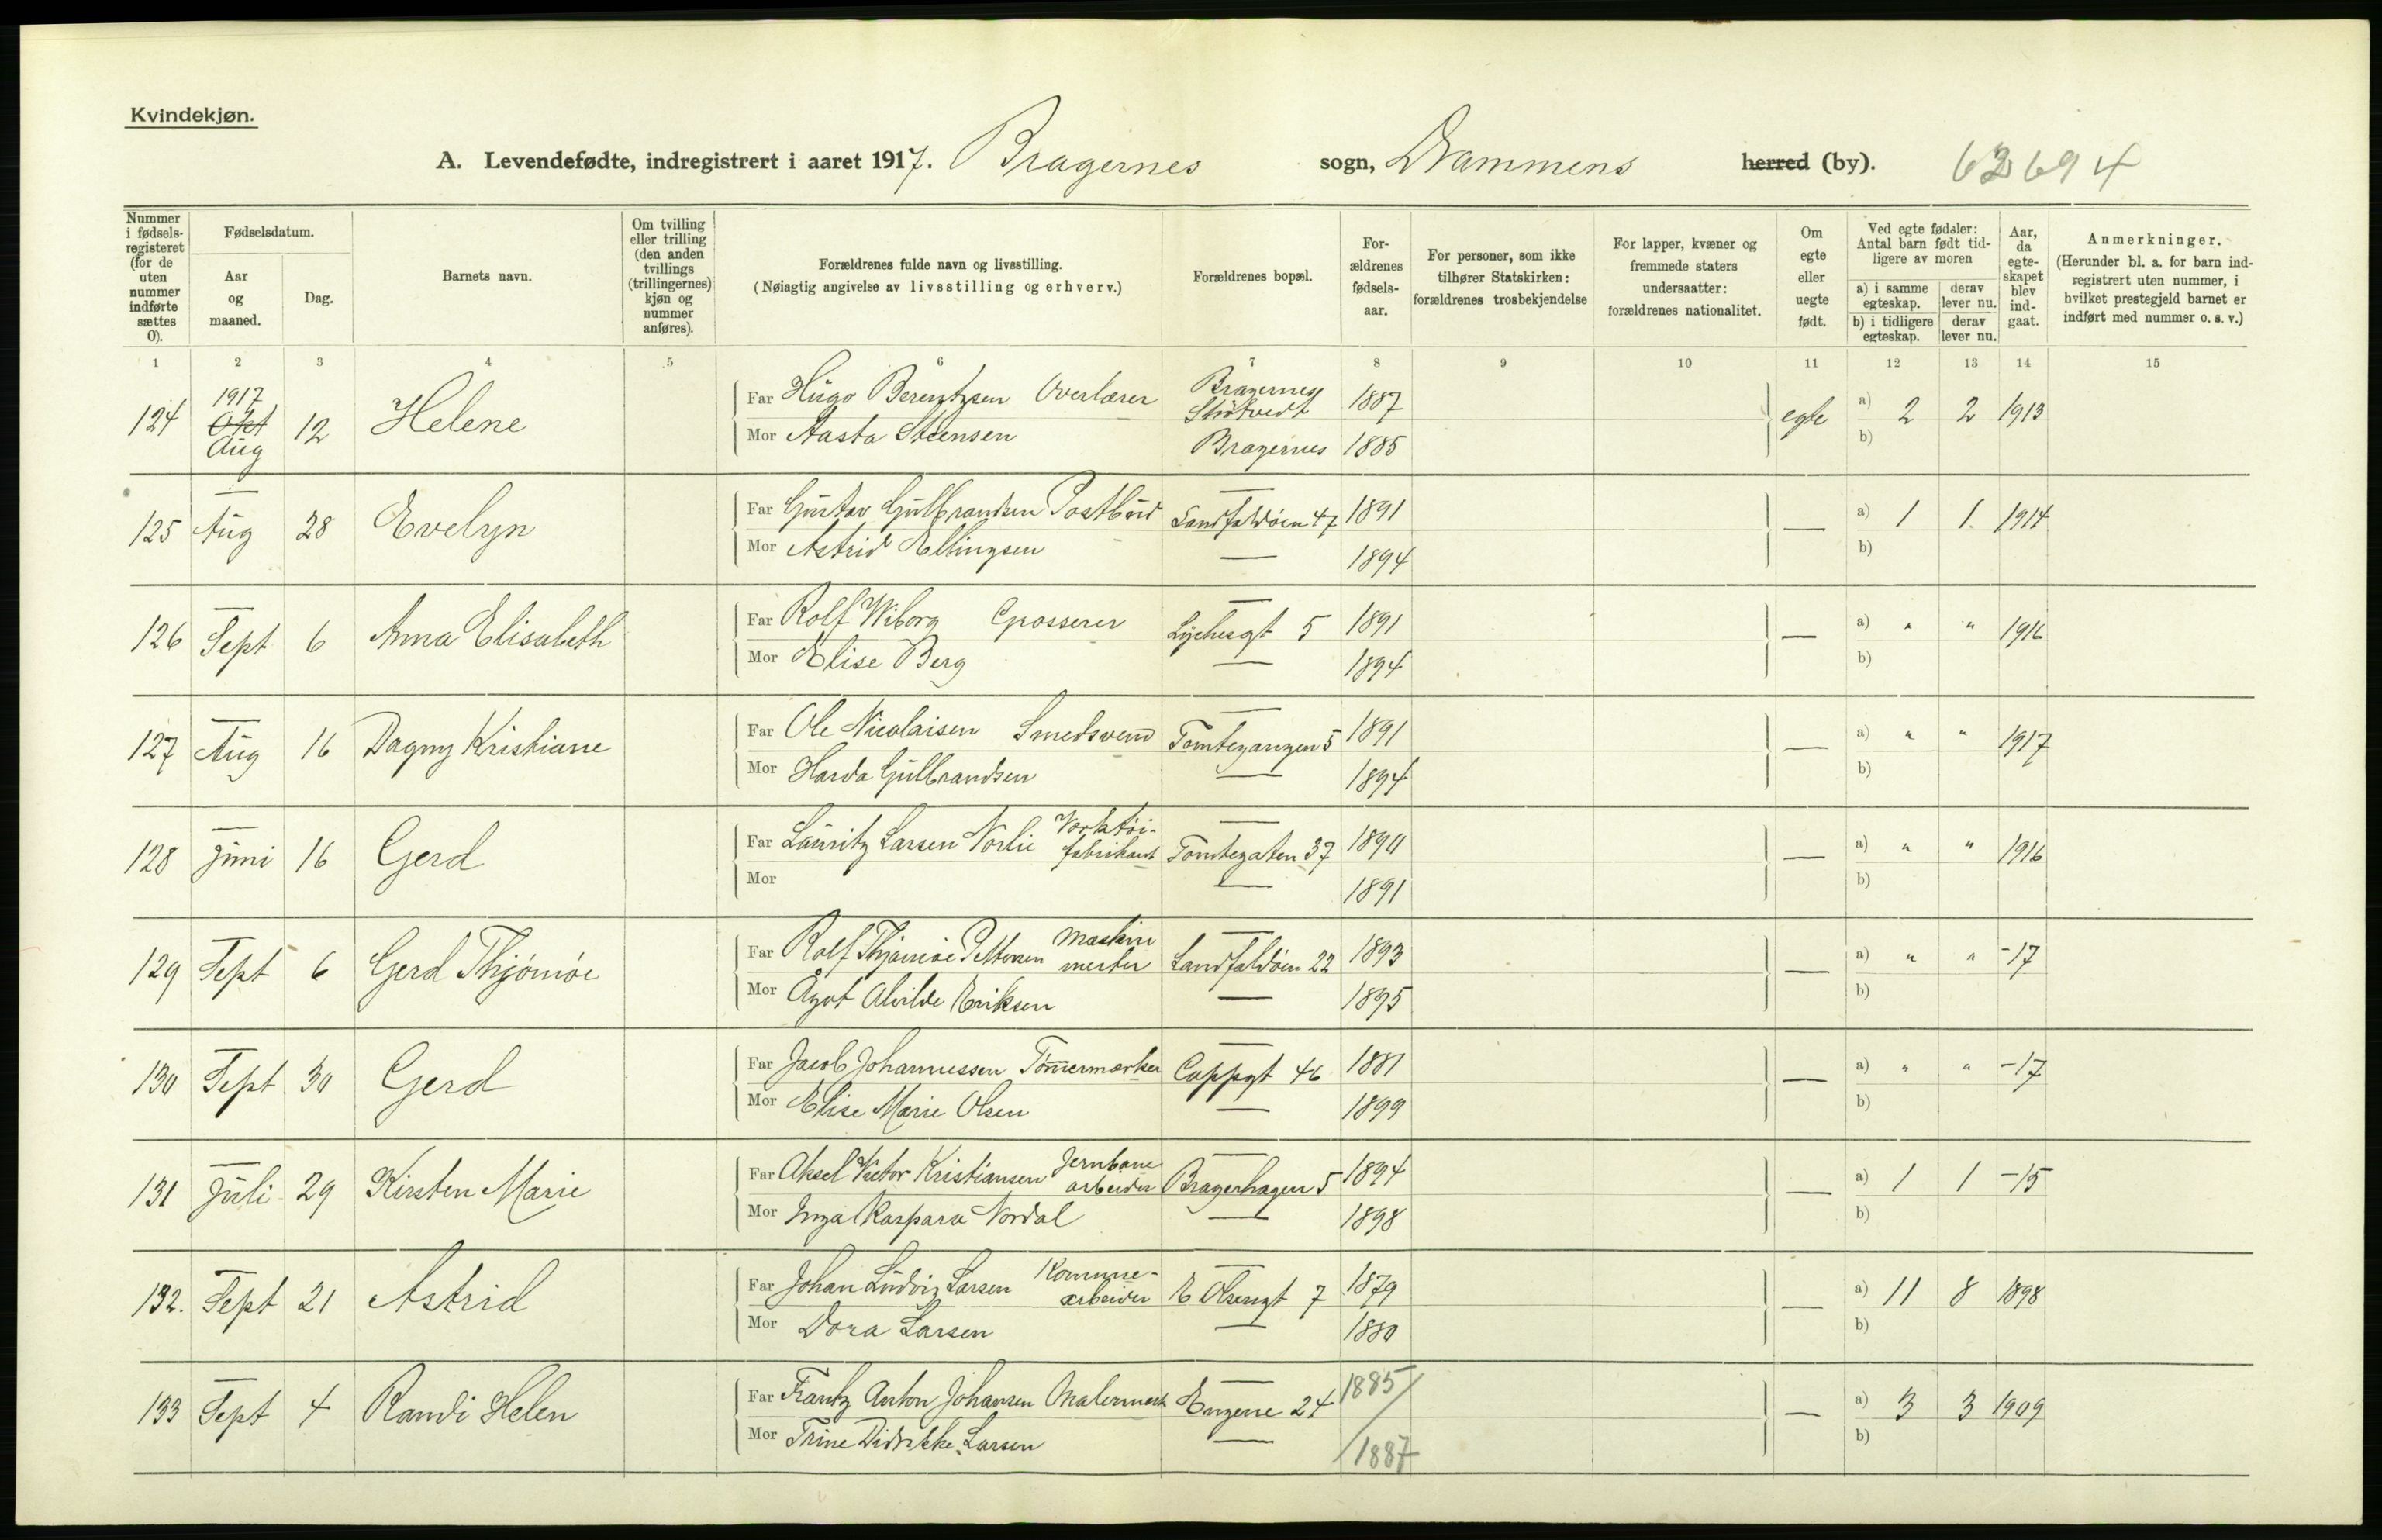 Kvindekjøn.
A. Levendefødte, indregistrert i aaret 1917. Bragernes sogn, Drammens herred (by). 63694
Nummer i fødsels-registeret (for de uten nummer indførte sættes 0).
Fødselsdatum.
Aar og maaned.
Dag.
Barnets navn.
Om tvilling eller trilling (den anden tvillings (trillingernes) kjøn og nummer anføres).
Forældrenes fulde navn og livsstilling.
(Nøiagtig angivelse av livsstilling og erhverv.)
Forældrenes bopæl.
For-ældrenes fødsels-aar.
For personer, som ikke tilhører Statskirken: forældrenes trosbekjendelse
For lapper, kvæner og fremmede staters undersaatter: forældrenes nationalitet.
Om egte eller uegte født.
Ved egte fødsler: Antal barn født tid-ligere av moren
a) i samme egteskap.
derav lever nu.
b) i tidligere egteskap.
derav lever nu.
Aar, da egte-skapet blev ind-gaat.
Anmerkninger.
(Herunder bl. a. for barn ind-registrert uten nummer, i hvilket prestegjeld barnet er indført med nummer o. s. v.)
1 2 3 4 5 6 7 8 9 10 11 12 13 14 15
1917
124 Okt Aug 12 Helene Far Hugo Berentzsen Overlærer Bragernes 1887 egte a) 2 2 1913
Mor Aasta Steensen Bragernes 1885 b)
125 Aug 28 Evelyn Far Gustav Gulbrandsen Postbud Landfaldöen 47 1891 — a) 1 1. 1914
Mor Astrid Ellingsen — 1894 b)
126 Sept 6 Anna Elisabeth Far Rolf Wiborg Grosserer Lychesgt 5 1891 — a) " " 1916
Mor Elise Berg — 1894 b)
127 Aug 16 Dagny Kristiane Far Ole Nicolaisen Smedsvend Tomtegangen 5 1891 — a) " " 1917
Mor Harda Gulbrandsen — 1894 b)
128 Juni 16 Gerd Far Lauritz Larsen Norlie Verktöi-fabrikant Tomtegaten 37 1890 — a) " " 1916
Mor — 1891 b)
129 Sept 6 Gerd Thjömöe Far Rolf Thjömöe Pettersen Maskinmester Landfaldöen 22 1893 — a) " " -17
Mor Ågot Alvilde Eriksen — 1895 b)
130 Sept 30 Gerd Far Jacob Johannessen Tömmermerker Cappgt 46 1881 — a) " " -17
Mor Elise Marie Olsen — 1899 b)
131 Juli 29 Kirsten Marie Far Aksel Victor Kristiansen Jernbanearbeider Bragerhagen 5 1894 — a) 1 1 -15
Mor Inga Kaspara Nordal — 1898 b)
132. Sept 21 Astrid Far Johan Ludvig Larsen Kommune-arbeider E Olsensgt 7 1879 — a) 11 8 1898
Mor Dora Larsen — 1880 b)
133 Sept 4 Randi Helen Far Frantz Anton Johansen Malermest Engene 24 1885 — a) 3 3 1909
Mor Trine Didrikke Larsen — 1887 b)